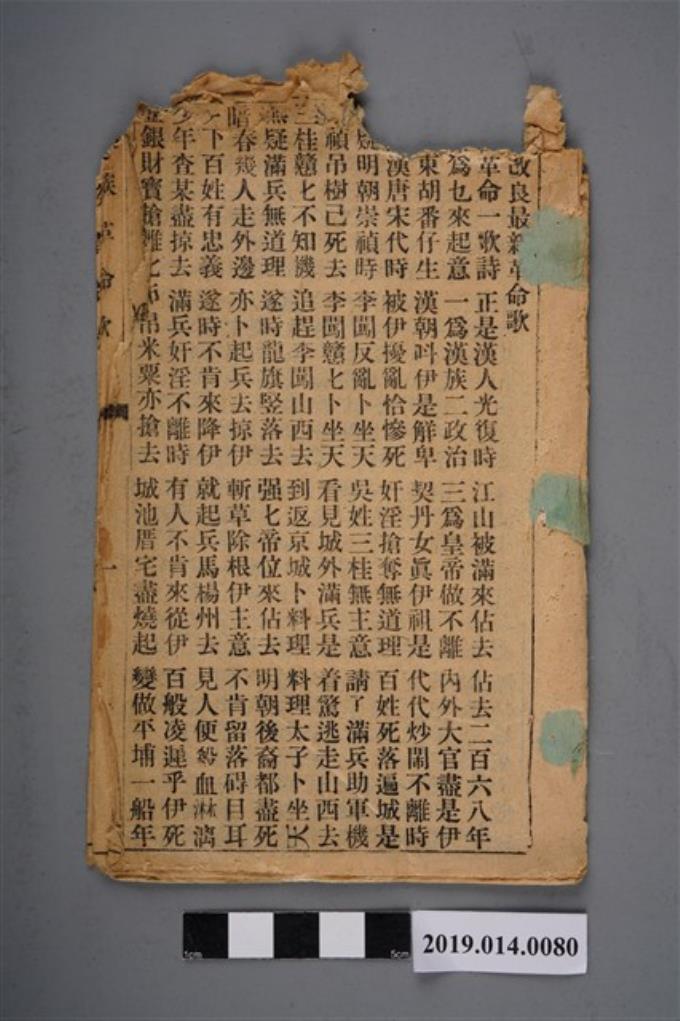 改良最新革命歌
革命一歌詩 正是漢人光復時 江山被滿來佔去 佔去二百六八年
為乜來起意 一為漢族二政治 三為皇帝做不離 內外大官盡是伊
東胡番仔生 漢朝呌伊是鮮卑 契丹女眞伊祖是 代代炒鬧不離時
漢唐宋代時 被伊擾亂恰慘死 奸淫搶奪無道理 百姓死落遍城是
疑明朝崇禎時 李闖反亂卜坐天 吳姓三桂無主意 請了滿兵助軍機
禎吊樹己死去 李闖戇七卜坐天 看見城外滿兵是 着驚逃走山西去
三桂戇七不知機 追趕李闖山西去 到返京城卜料理 料理太子卜坐天
無疑滿兵無道理 遂時龍旗竪落去 强七帝位來佔去 明朝後裔都盡死
暗春幾人走外邊 亦卜起兵去掠伊 斬草除根伊主意 不肯留落碍目耳
下百姓有忠義 遂時不肯來降伊 就起兵馬楊州去 見人便殺血淋漓
少年查某盡掠去 滿兵奸淫不離時 有人不肯來從伊 百般凌遲乎伊死
銀財寶搶離七 吊米粟亦搶去 城池厝宅盡燒起 變做平埔一船年
族革命歌
一
1cm
5cm
2019.014.0080